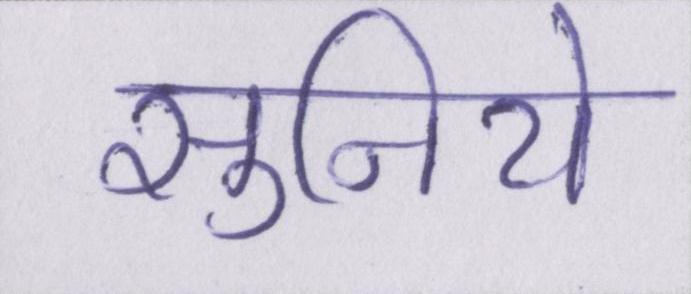 सुनिये